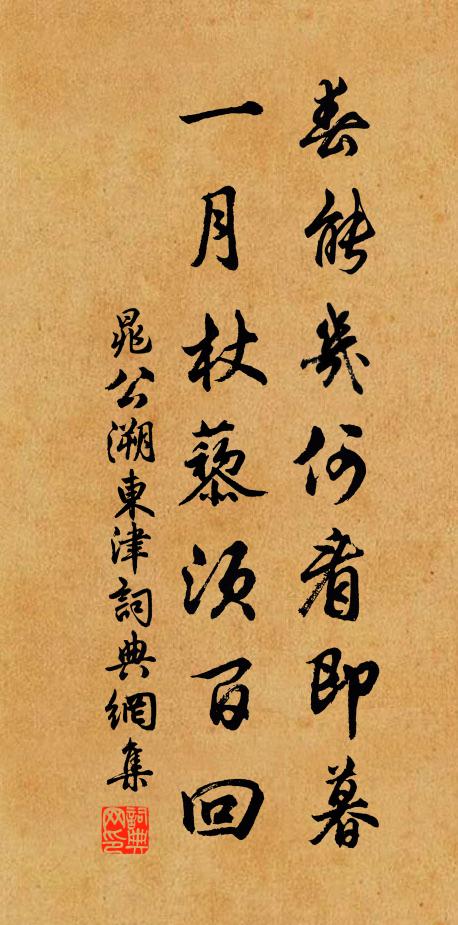 春能幾何看即暮
一月杖藜須百回
晁公溯東津詞典網集
詞典网印